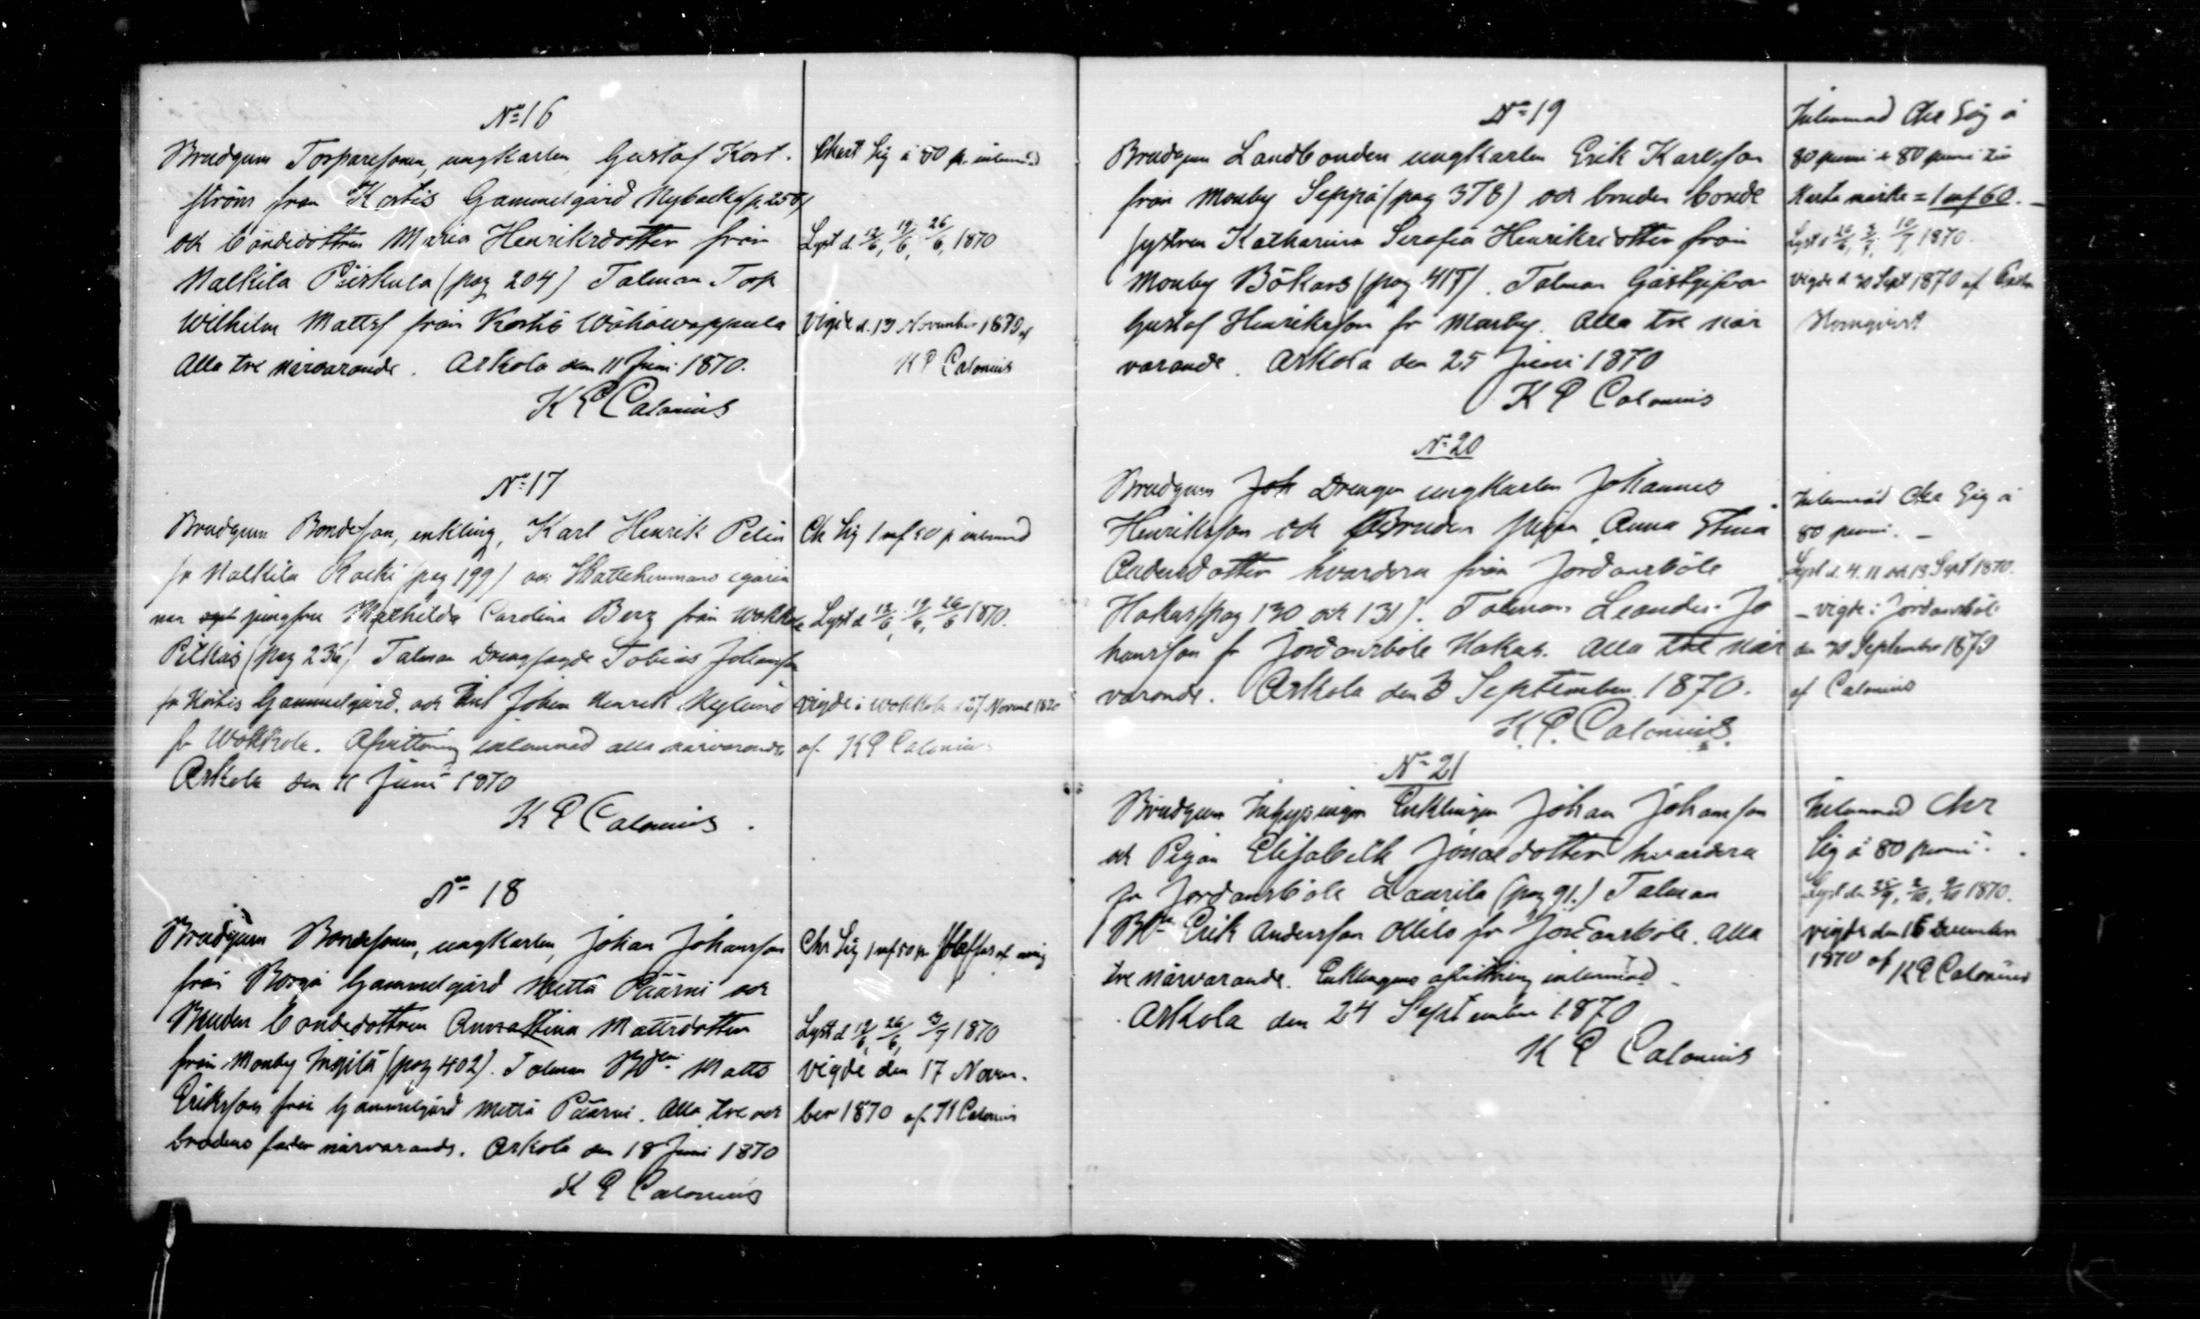 No 16
Brudgum Torparesonen, ungkarlen Gustaf Kort-
ström från Kortis Gammelgård Nybacka (p. 258)
och bondedottren Maria Henriksdotter från
Malkila Piiskula (pag 204) Talman Torp
Wilhelm Mattsf från Kortis Wähäwappula
Alla tre närvarande. Askola den 11 Juni 1870.
K P Calonius
Chart Sig à 80 p. inlemnad
Lyst d. 12/6, 19/6, 26/6, 1870
Vigde d. 19 November 1870 af
K P Calonius
No 17
Brudgum Bondeson, enkling, Karl Henrik Pelin
fr Malkila (pag 199) och
nan jungfru Mathilda Carolina Berg från Wakkola
Pilkäs (pag 236) Talman Tobias Johansson
fr Kortis Gammelgård. och Johan Henrik Nylund
fr Wakkola. Afvittring inlemnad alla närvarande
Askola den 11 Juni 1870
K P Calonius.
Ch Sig 1 mf 50 p inlemnad
Lyst d 12/6, 19/6, 26/6 1870.
Vigde i Wakkola d 27 Novemb 1870
af K P Calonius
No 18
Brudgum Bondesonen, ungkarlen, Johan Johansson
från Borgå Gammelgård Mettä Päärni och
Bruden bondedottren Anna Stina Mattsdotter
från Monby (pag 402). Talman Bdn Matts
Eriksson från Gammelgård Mettä Päärni. Alla tre och
brudens fader närvarande. Askola den 18 Juni 1870
K P Calonius
Chr Sig 1 mf 50 p
Lyst d 19/6, 26/6, 3/7 1870
vigde den 17 Novem-
ber 1870 af K Calonius
No 19
Brudgum Landbonden ungkarlen Erik Karlsson
från Monby Seppä (pag 378) och bruden bonde
systren Katharina Serafia Henriksdotter från
Monby Bökars (pag 417). Talman Gästgifvar
Gustaf Henriksson fr Monby. Alla tre när
varande. Askola den 25 Juni 1870
K P Calonius
Inlemnad Cha Sig à
80 penni & 80 penni
Karta märke = 1 mf 60. —
Lyst d 26/6, 3/7, 10/7 1870.
vigde d 30 Sept 1870 af
Holmqvist
No 20
Brudgum Joh Drengen ungkarlen Johannes
Henriksson och Bruden pigan Anna Stina
Andersdotter hvardera från Jordansböle
Hakas (pag 130 och 131). Talman Leander Jo
hansson fr Jordansböle Hakas. Alla tre när
varande. Askola den 3 September 1870.
K. P. Calonius.
Inlemnad Cha Sig à
80 penni. —
Lyst d. 4. 11 och 18 Sept 1870.
— vigde i Jordansböle
den 30 September 1870
af Calonius
No 21
Brudgum Inhysingen Enklingen Johan Johansson
och Pigan Elisabeth Jonaedotter hvardera
fr Jordansböle Laurila (pag 91.) Talman
Bdn Erik Andersson Ollila fr Jordansböle. Alla
tre närvarande. Enklingens afvittring inlemnad.
Askola den 24 September 1870
K P Calonius
Inlemnad Chr
Sig à 80 penni.
Lyst den 25/9, 2/10, 9/10 1870.
vigde den 16 December
1870 af K P Calonius